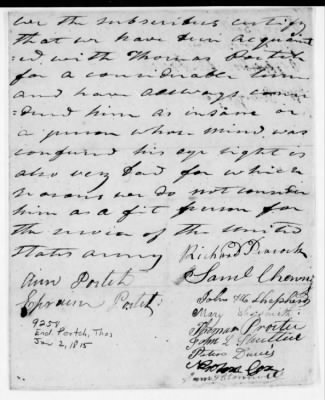 we the subscribers certify
that we have bin acquaint
=ed with Thomas Portch
for a considerable time
and have allways consi
=dered him as insane or
a person whose mind was
confused his eye sight is
also very bad for which
reasons we do not consider
him as a fit person for
the service of the united
States army
Richard Peacock
Ann Portch
Saml
Epraim Portch
John Shepherd
Mary
Thomas Procter
9258
John L
End. Portch, Thos
Peter Davies
Jan 2, 1815
Cox